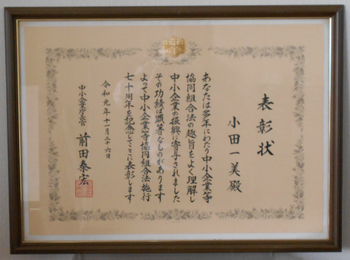 表彰状
小田一美殿
あなたは多年にわたり中小企業等
協同組合法の趣旨をよく理解し
中小企業の振興に寄与されました
その功績は顕著なものがあります
よって中小企業等協同組合法施行
七十周年を記念してここに表彰します
令和元年十一月二十六日
中小企業庁長官
前田泰宏